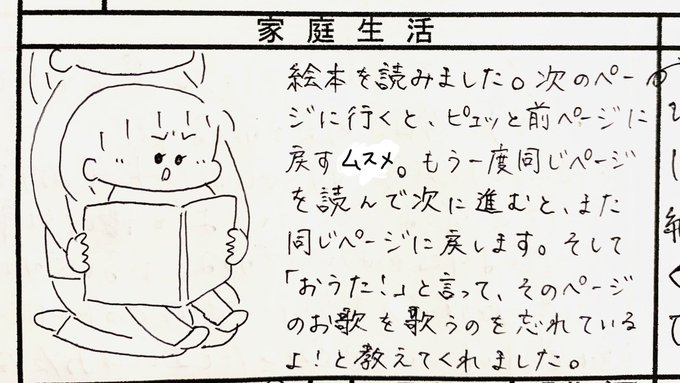 家庭生活
絵本を読みました。次のペー
ジに行くと、ピュッと前ページに
戻すムスメ。もう一度同じページ
を読んで次に進むと、また
同じページに戻します。そして
「おうた!」と言って、そのページ
のお歌を歌うのを忘れている
よ!と教えてくれました。